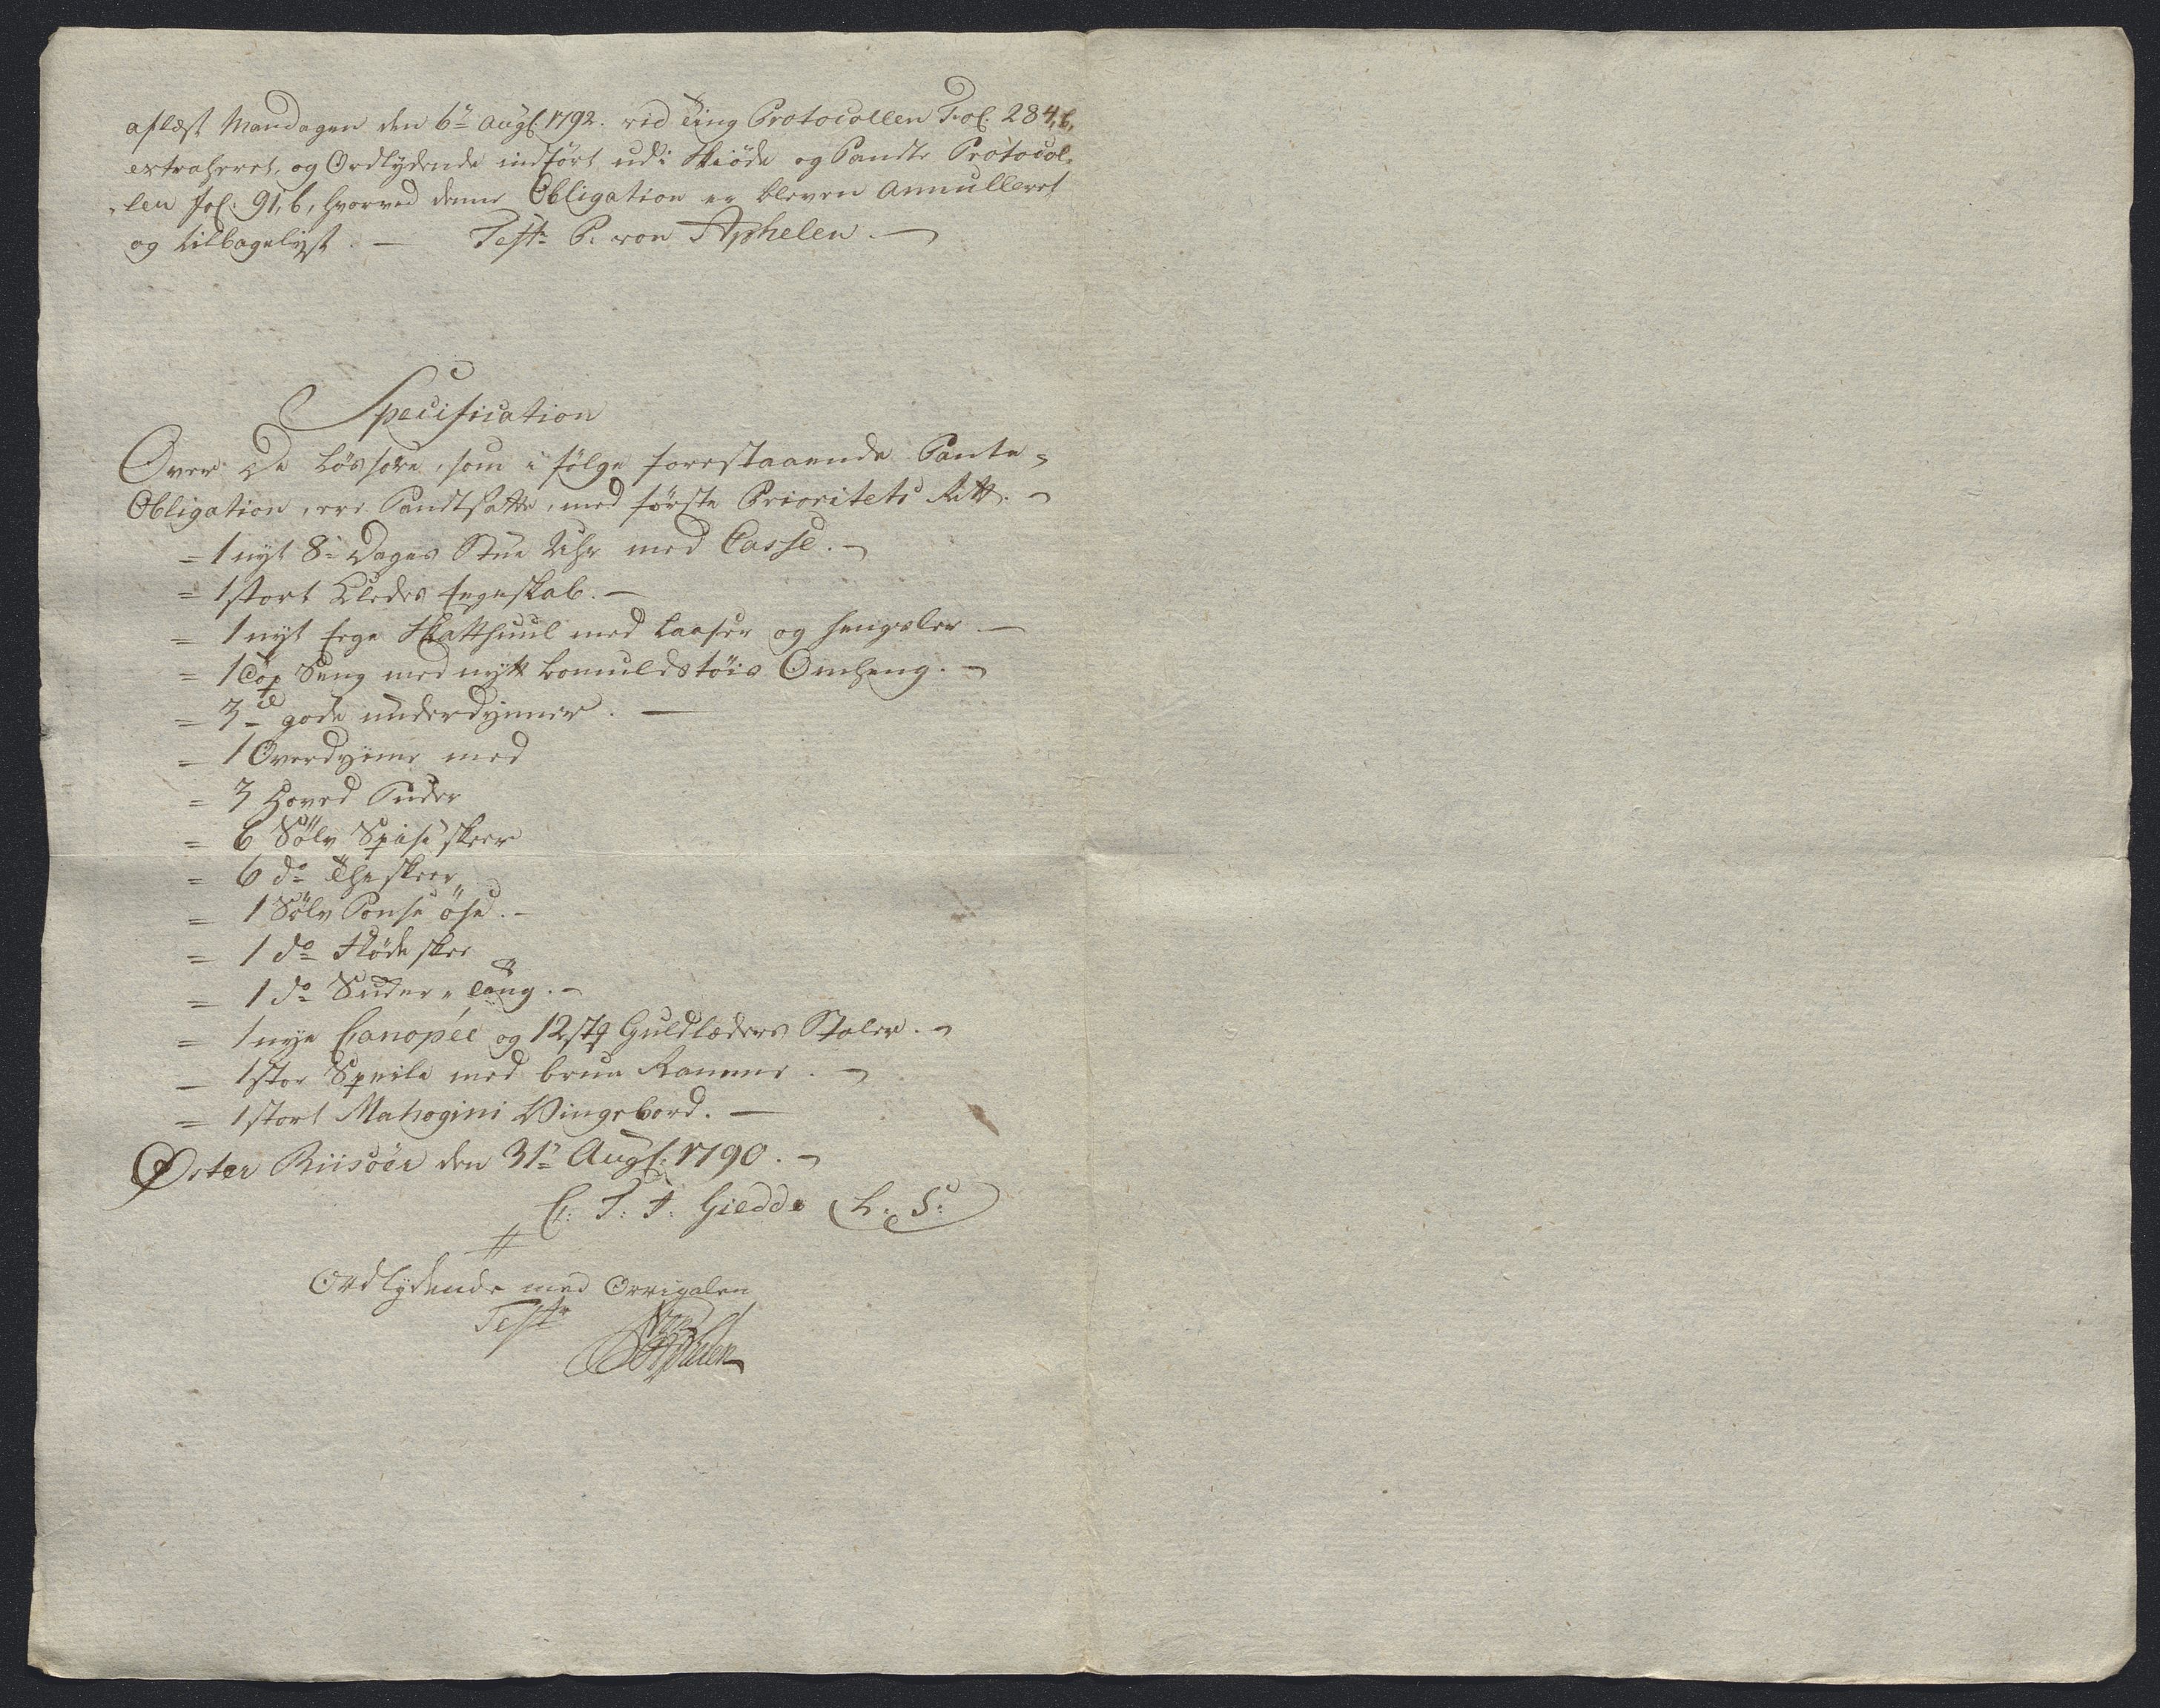 aflæst Mandagen den 6te Augs: 1792. ved Ting Protocollen Fol: 284, b,
extraheret, og Ordlydende indført udi Skiöde og Pandte Protocol-
„len fol: 91, b, hvorved denne Obligation er bleven Annulleret
og tilbagelyst. — Test: P. von Aphelen. —
Specification
Over De Løssøre, som i følge forestaaende Pante-
Obligation, ere Pandtsatte, med første Prioritets Rett. -
= 1 nyt 8te Dages Stue Uhr med Casse. -
= 1 stort Kledes Egeskab. —
= 1 nyt Ege Skatthuul med Laaser og hengsler —
= 1 Seng med nytt bomulds tøis Omheng. -
= 3de gode underdynner. —
= 1 Overdynne med
= 3 Hoved Puder
= 6 Sölv Spise skeer
= 6 do The skeer
= 1 Sölv Ponse øse. -
= 1 do Fløde skee
= 1 do Suker „ Tang. -
= 1 nye Canopée og 12 stk Guldlæders Stoler. -
— 1 stor Speile med brun Ramme. -
= 1 stort Mahogini Vingebord. —
Øster Riisöer den 31te Augs: 1790. -
C: T: F: Giedde (L. S:)
Ordlydende med Orrigalen
Test:
Aphelen